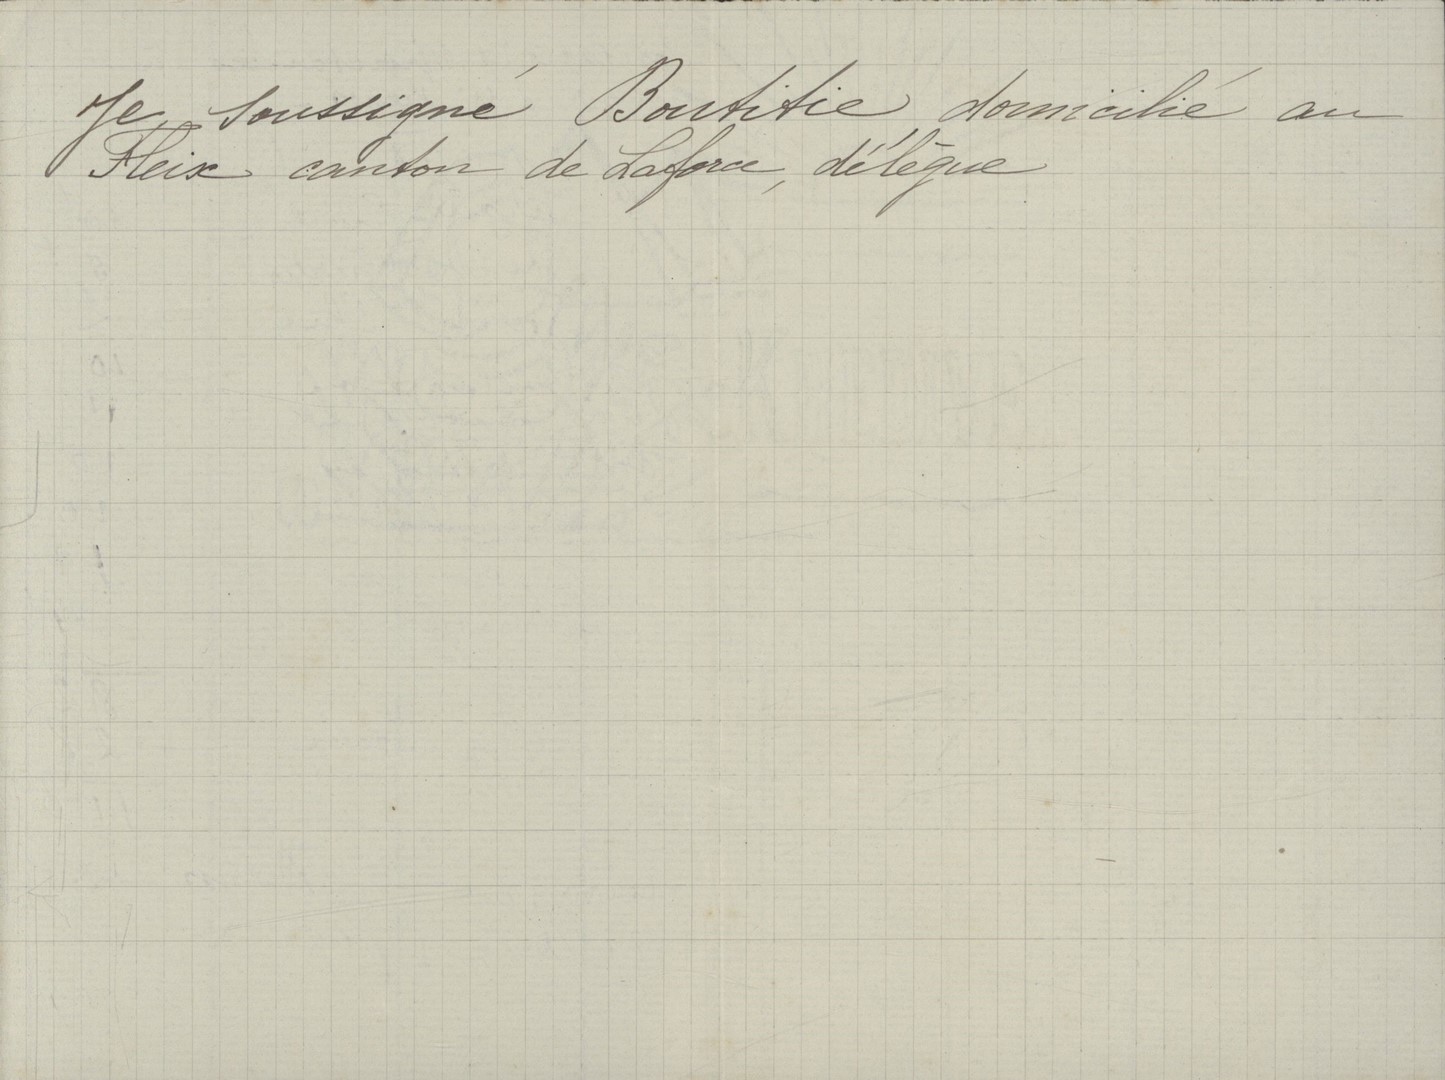 Je soussigné Boutitie domicilié au
Fleix canton de Laforce, délègue